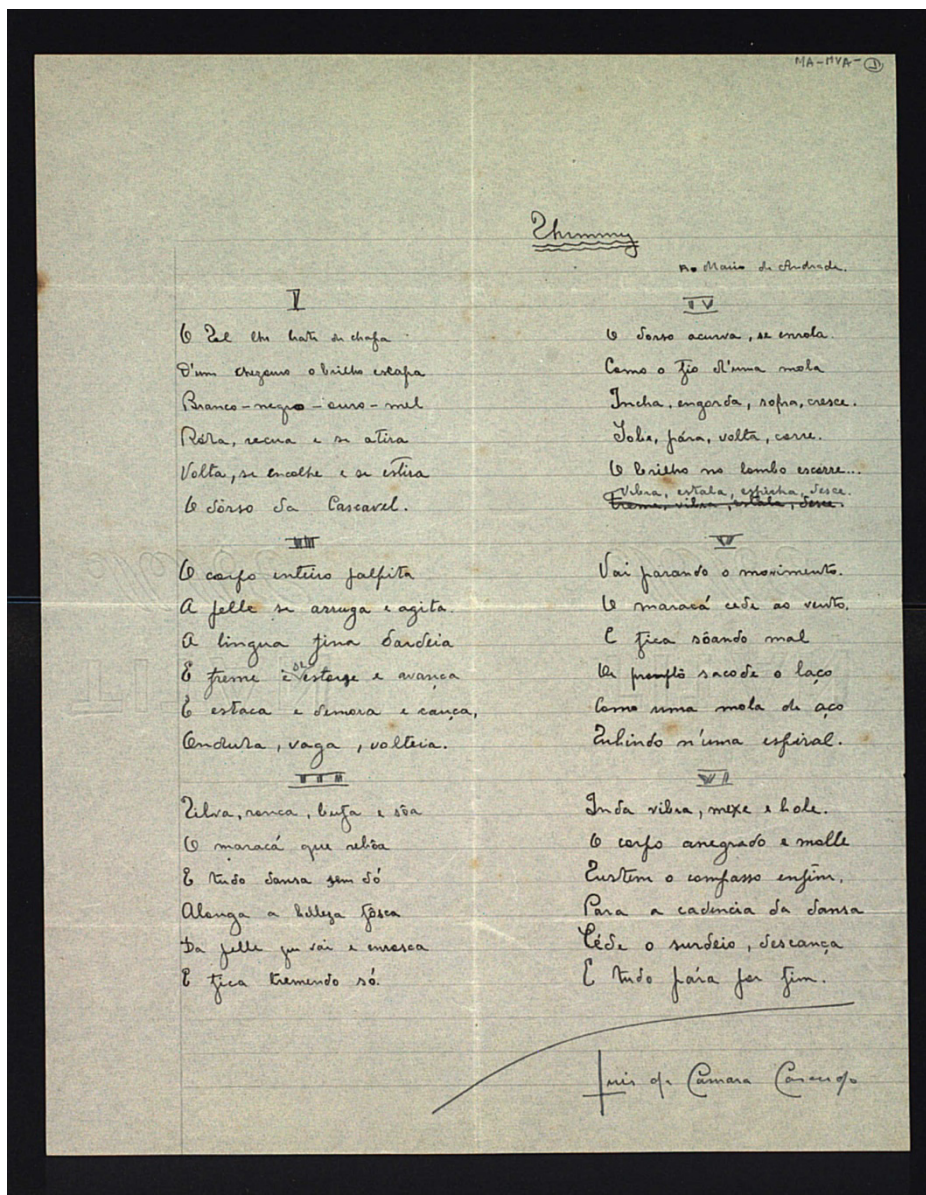 MA-MVA-1
Shimmy
Ao Mario de Andrade.
I
O Sol lhe bate de chapa
D'um chezouro o brilho escapa
Branco-negro-ouro-mel
Róla, recua e se atira
Volta, se encolhe e se estira
O dôrso da Cascavel.
II
O corpo inteiro palpita
A pelle se arruga e agita.
A lingua fina dardeia
E freme e destorge e avança
E estaca e demora e cança,
Ondula, vaga, volteia.
III
Silva, ronca, bufa e sôa
O maracá que rebôa
E tudo dansa sem dó
Alonga a belleza fôsca
Da pelle que vai e enrosca
E fica tremendo só.
IV
O dorso acurva, se enrola.
Como o fio d'uma mola
Incha, engorda, sopra, cresce.
Sobe, pára, volta, corre.
O brilho no lombo escorre...
Vibra, estala, espicha, desce.
Freme, vibra, estala, desce.
V
Vai parando o movimento.
O maracá cede ao vento.
E fica sôando mal
De prompto sacode o laço
Como uma mola de aço
Subindo n'uma espiral.
VI
Inda vibra, mexe e bole.
O corpo anegrado e molle
Sustem o compasso enfim.
Para a cadencia da dansa
Céde o surdeio, descança
E tudo pára por fim.
Luis da Camara Cascudo